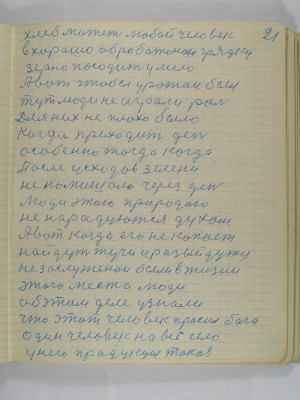 21
хлеб может любой человек
в хорошо обработоною грядки
зерно посодит умело
А вот чтобы урожаи были
тут люди не играли рол
Для них не плохо было
когда приходит деп
особенно тогда когда
После усходов зелени
не помишоло через деп
Люди этого природого
не нарадуются духом
А вот когда его не копает
найдут туча и разый дужи
не заслуженои были в жизни
этого места люди
об этом деле узнали
что этот человек просил бога
один человек на всё село
у него продукция таков